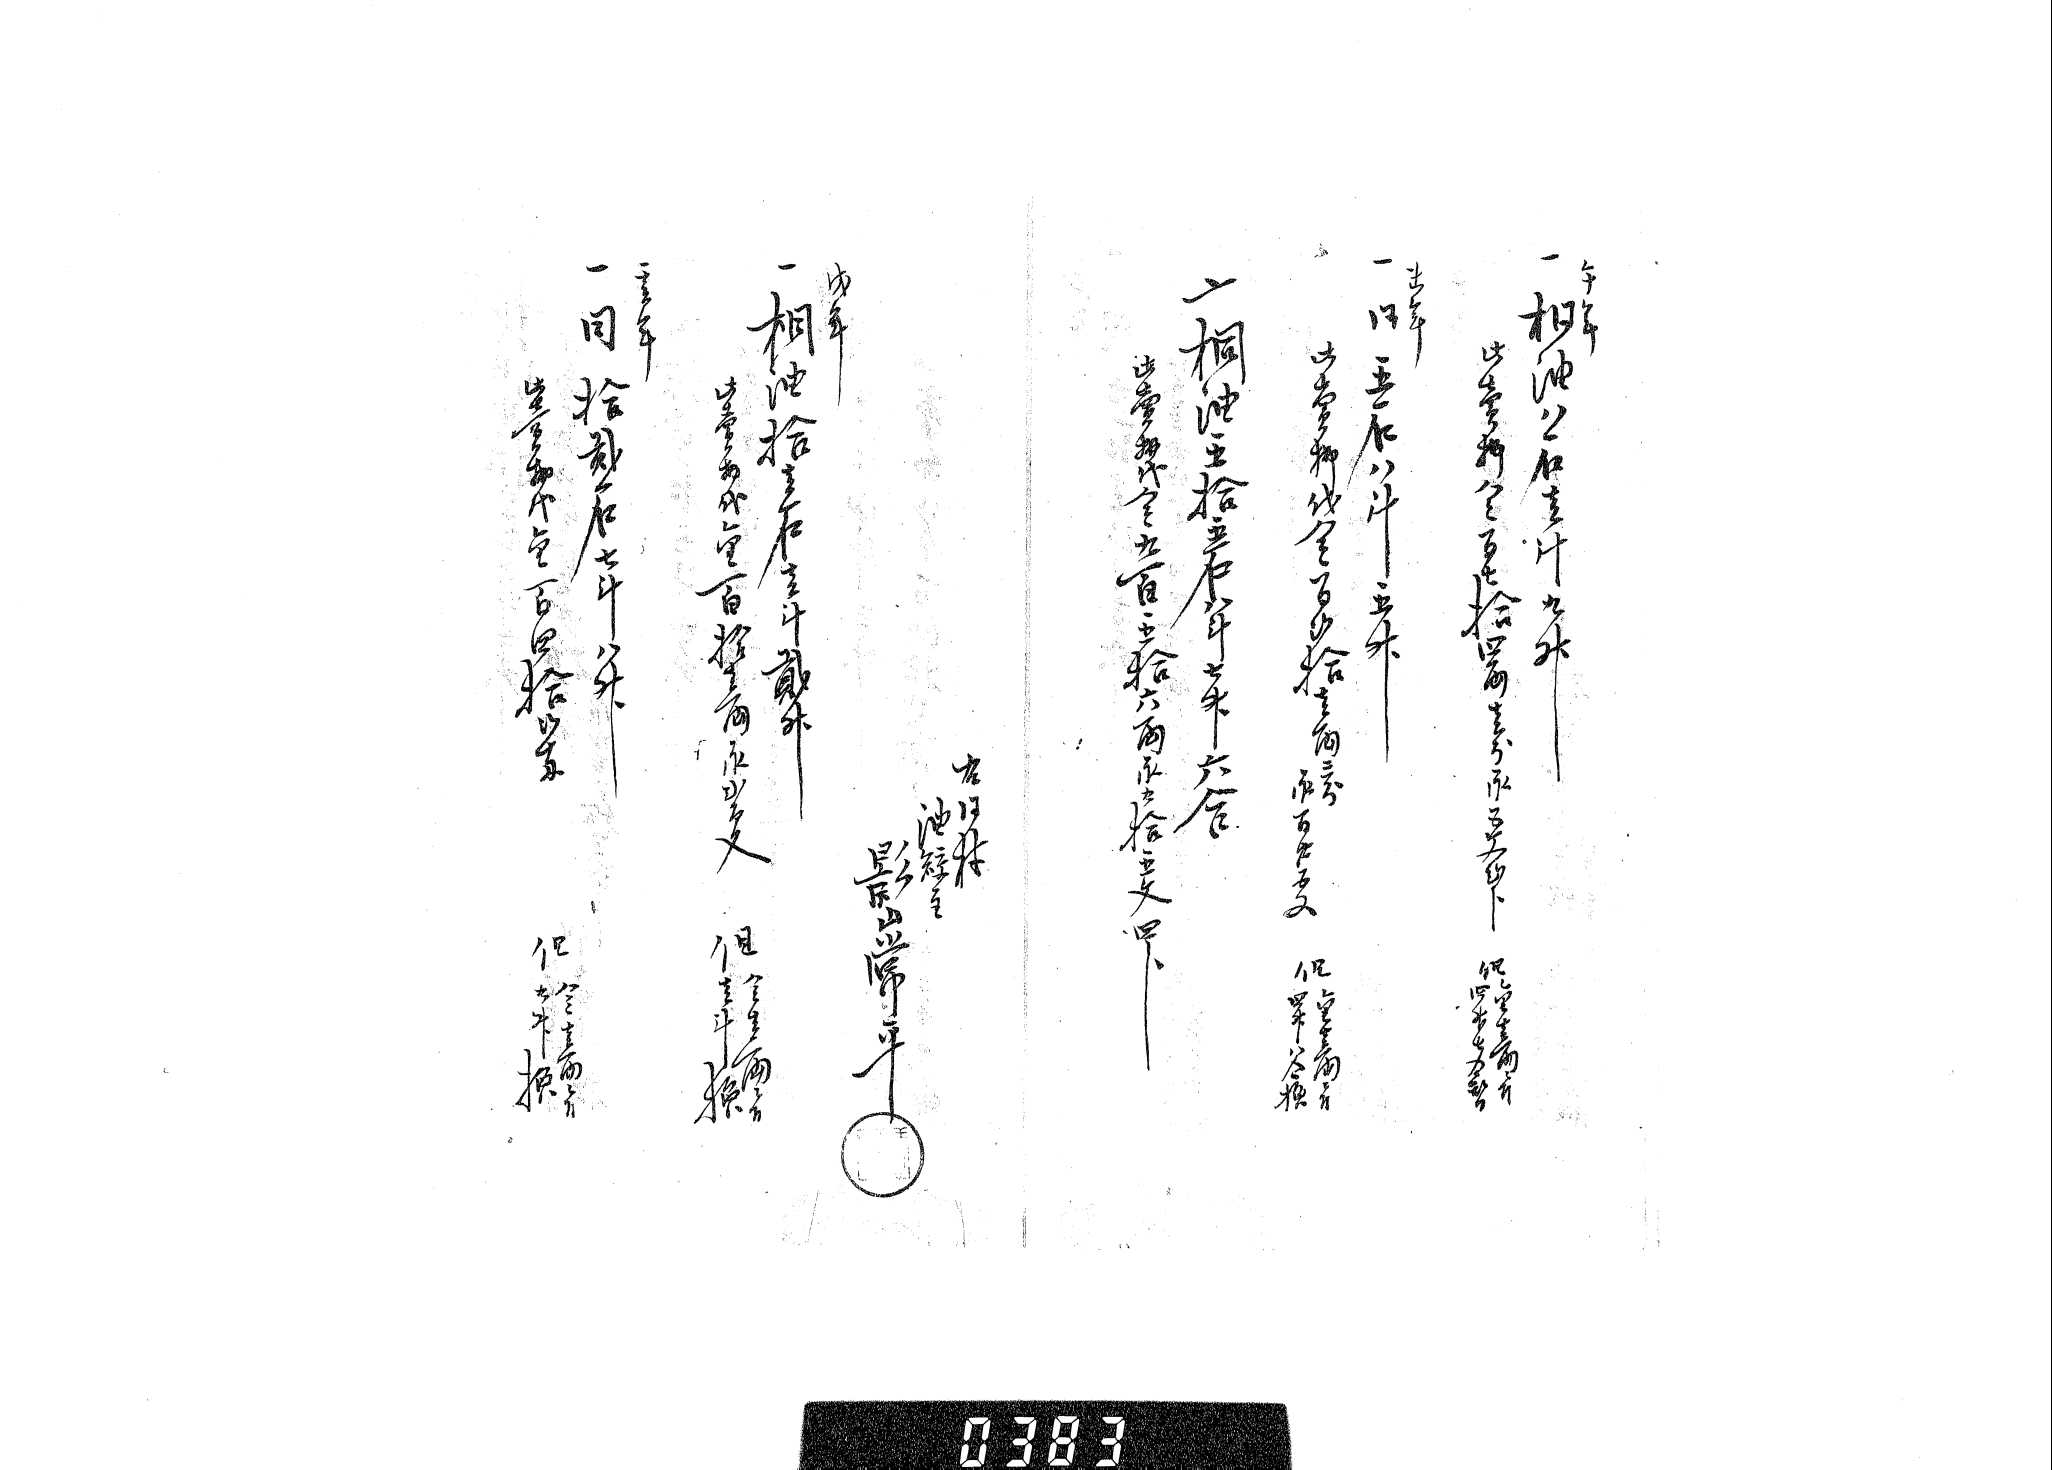 午年
一桐油八石壱斗九升
此売揚金百七拾四両壱分永
但金壱両ニ付
四升七合替
未年
一同五石八斗五升
此売揚代金百弐拾壱両三分
永百
但金壱両ニ付
四升八合換
〆桐油五拾五石八斗七升六合
此売揚代金九百五拾六両永九拾五文四分
右同村
油絞主
影山常平
戌年
一桐油拾壱石壱斗貳升
此売揚代金百拾壱両永弐百文
但金壱両ニ付
壱斗換
亥年
一同拾貳石七斗八升
此売揚代金百四拾弐両
但金壱両ニ付
九升換
0383